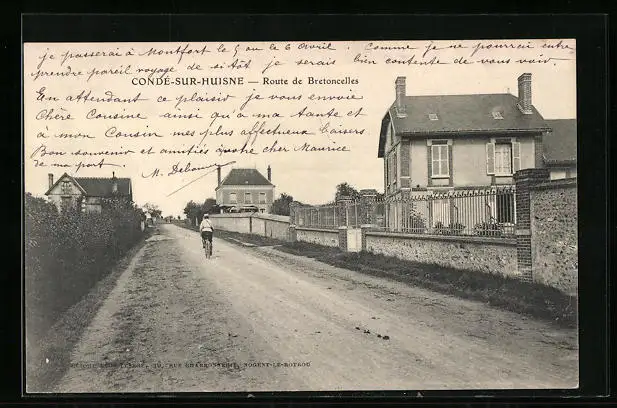 je passerai à Montfort le 5 ou le 6 Avril. Comme je ne pourrai entre
prendre pareil voyage de sitôt je serais bien contente de vous voir.
CONDÉ-SUR-HUISNE — Route de Bretoncelles
En attendant ce plaisir je vous envoie
Chère Cousine ainsi qu'à ma tante et
à mon Cousin mes plus affectueux baisers
Bon souvenir et amitiés à votre cher Maurice
de ma part.
M.
RUE CHARRONNERIE, NOGENT-LE-ROTROU